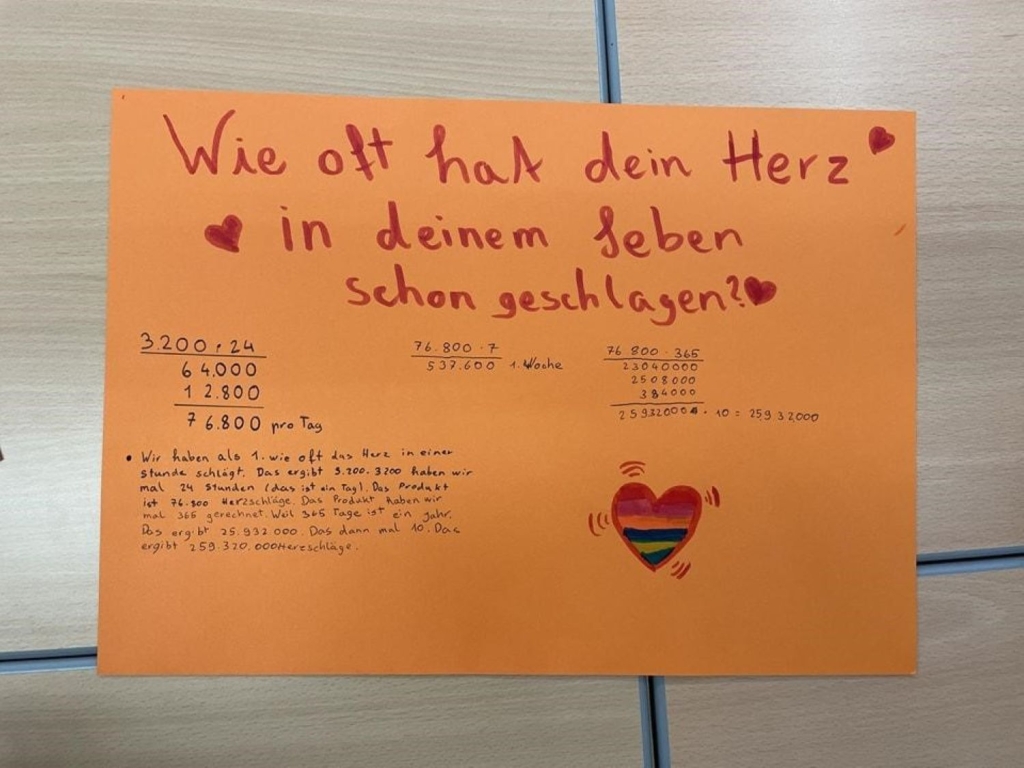 Wie oft hat dein Herz
in deinem Leben
schon geschlagen?
3.200 · 24
64.000
12.800
76.800 pro Tag
76.800 · 7
537.600 1. Woche
76.800 · 365
23040000
2508000
384000
25932000 · 10 = 25932000
• Wir haben als 1. wie oft das Herz in einer
Stunde schlägt. Das ergibt 3.200. 3200 haben wir
mal 24 Stunden (das ist ein Tag). Das Produkt
ist 76.800 Herzschläge. Das Produkt haben wir
mal 365 gerechnet. Weil 365 Tage ist ein Jahr.
Das ergibt 25.932.000. Das dann mal 10. Das
ergibt 259.320.000 Herzschläge.